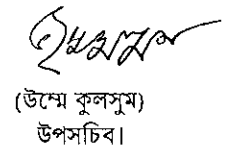 (উম্মে কুলসুম)
উপসচিব।